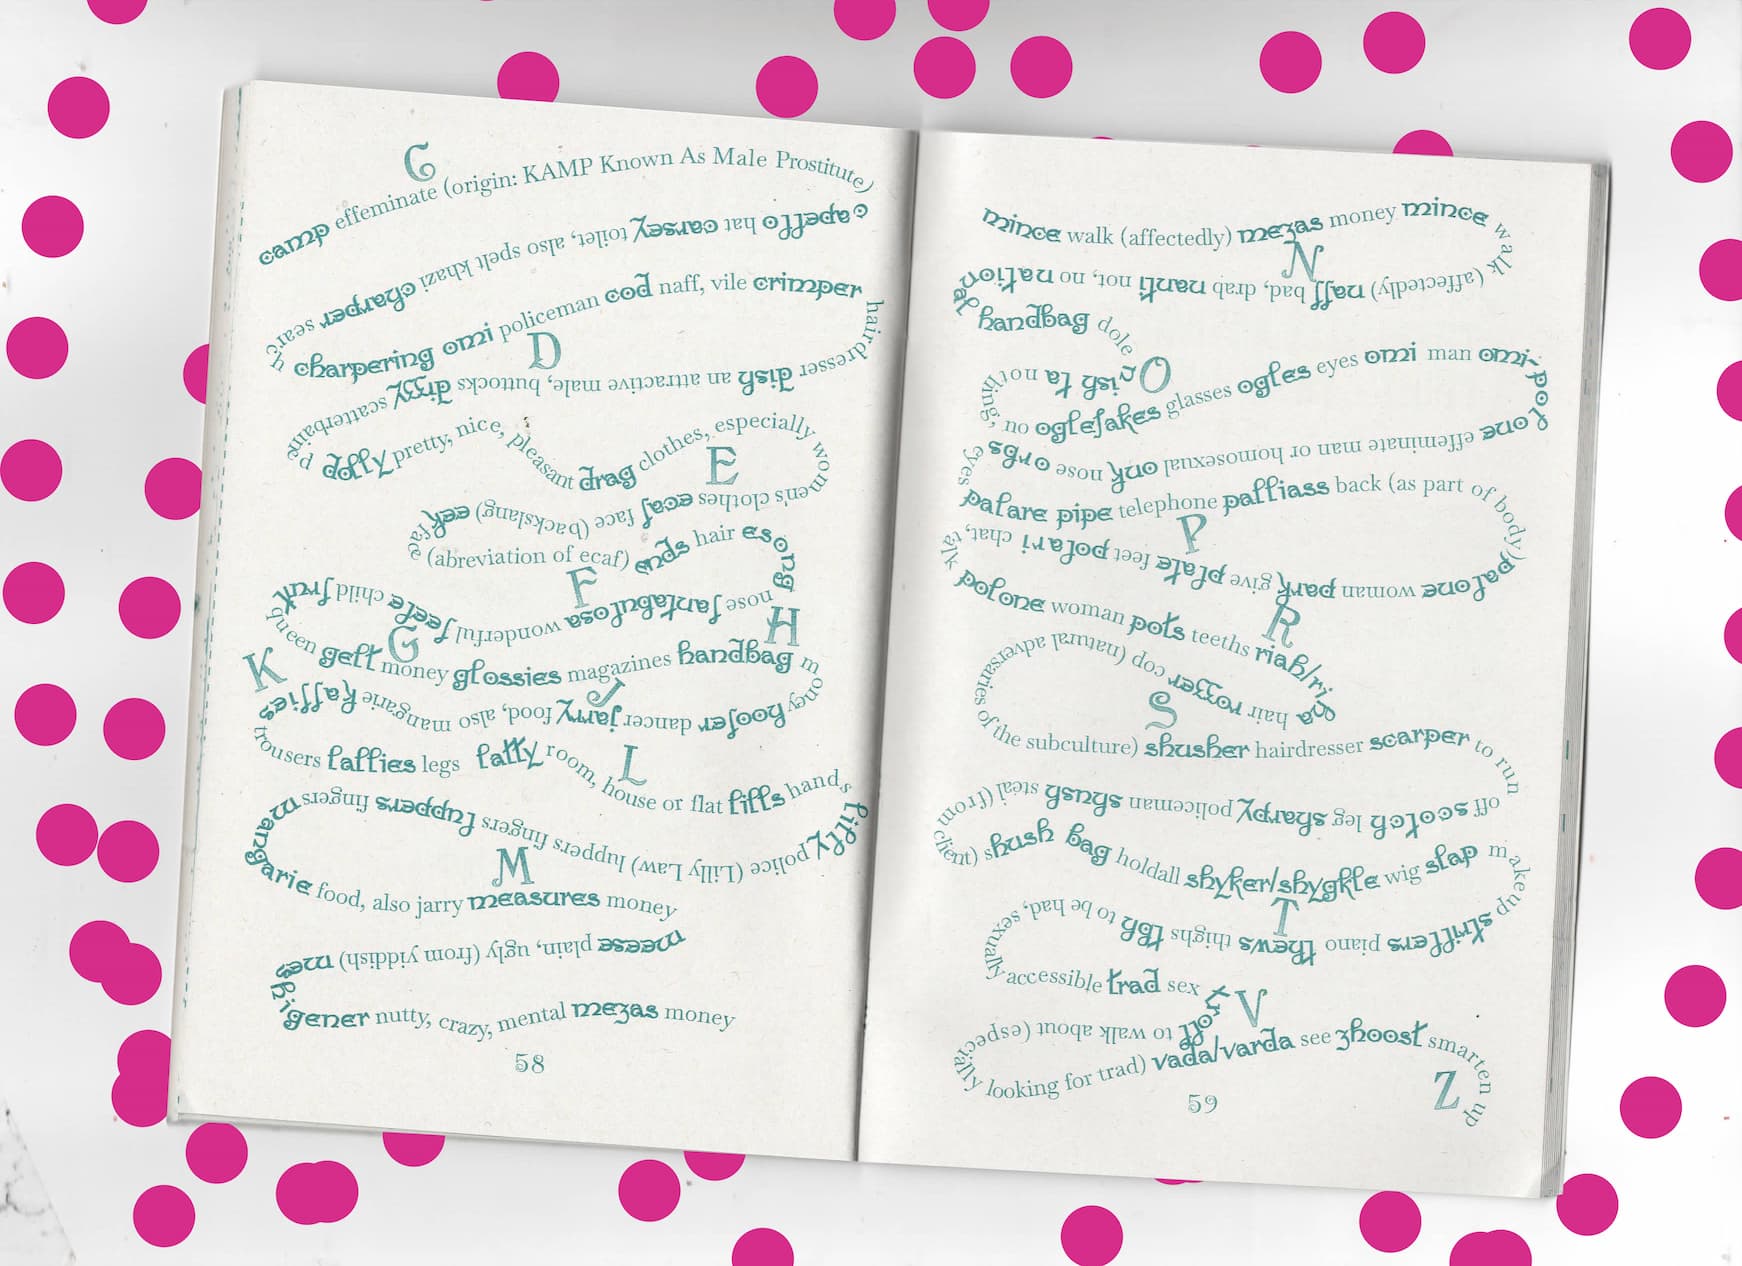 C
camp effeminate (origin: KAMP Known As Male Prostitute)
capello hat carsey toilet, also spelt khazi charper search
charpering omi policeman cod naff, vile crimper hairdresser
D
dish an attractive male, buttocks dizzy scatterbained
dolly pretty, nice, pleasant drag clothes, especially women's clothes
E
ecaf face (backslang) eek face
(abreviation of ecaf) ends hair esong nose
F
fantabulosa wonderful feele child fruk queen
G
gelt money glossies magazines handbag money
H
hoofer dancer jarry food, also mangarie kaffies
J
K
trousers lallies legs latty room, house or flat lills hands
L
lilly police (Lilly Law) luppers fingers luppers fingers mangarie
M
food, also jarry measures money
meese plain, ugly (from yiddish) meshigener
nutty, crazy, mental mezas money
58
mince walk (affectedly) mezas money mince walk
N
(affectedly) naff bad, drab nanti not, no national
handbag dole
nish ta not
O
nothing, no oglefakes glasses ogles eyes omi man omi-polone
effeminate man or homosexual onk nose orbs eyes
palare pipe telephone palliass back (as part of body)
P
palone woman park give plate feet polari chat, talk
polone woman pots teeths riah/riha
R
hair rozzer cop (natural adversaries
S
of the subculture) shusher hairdresser scarper to run
off scotch leg sharpy policeman shush steal (from
client) shush bag holdall shyker/shygkle wig slap makeup
T
strillers piano thews thighs tbh to be had, sexually
accessible trad sex troll
V
to walk about (especially
looking for trad) vada/varda see zhoost smarten up
Z
59